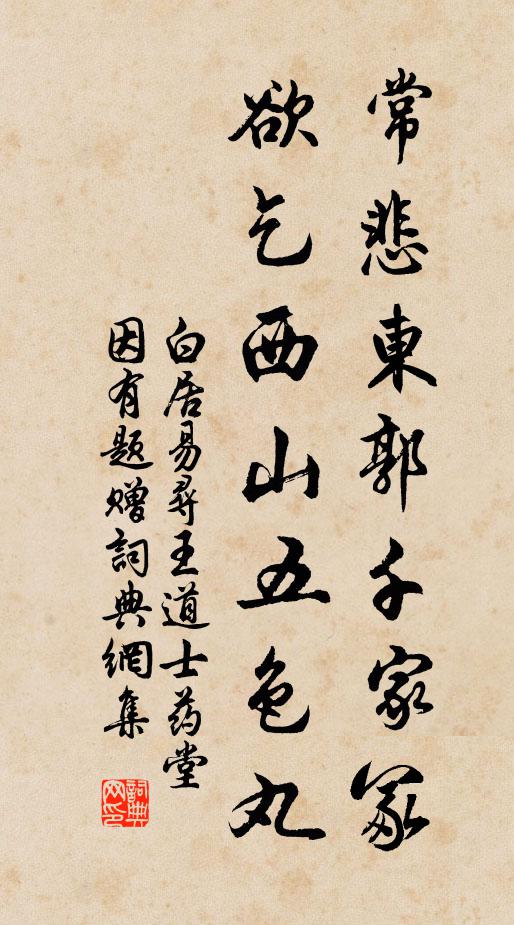 常悲東郭千家冢
欲乞西山五色丸
白居易尋王道士药堂
因有题赠詞典網集
詞典
网印